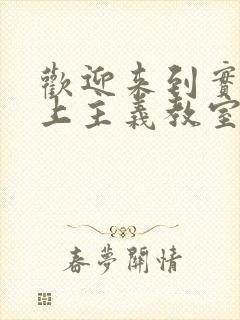 歡迎來到實
上主義教室
春夢關情